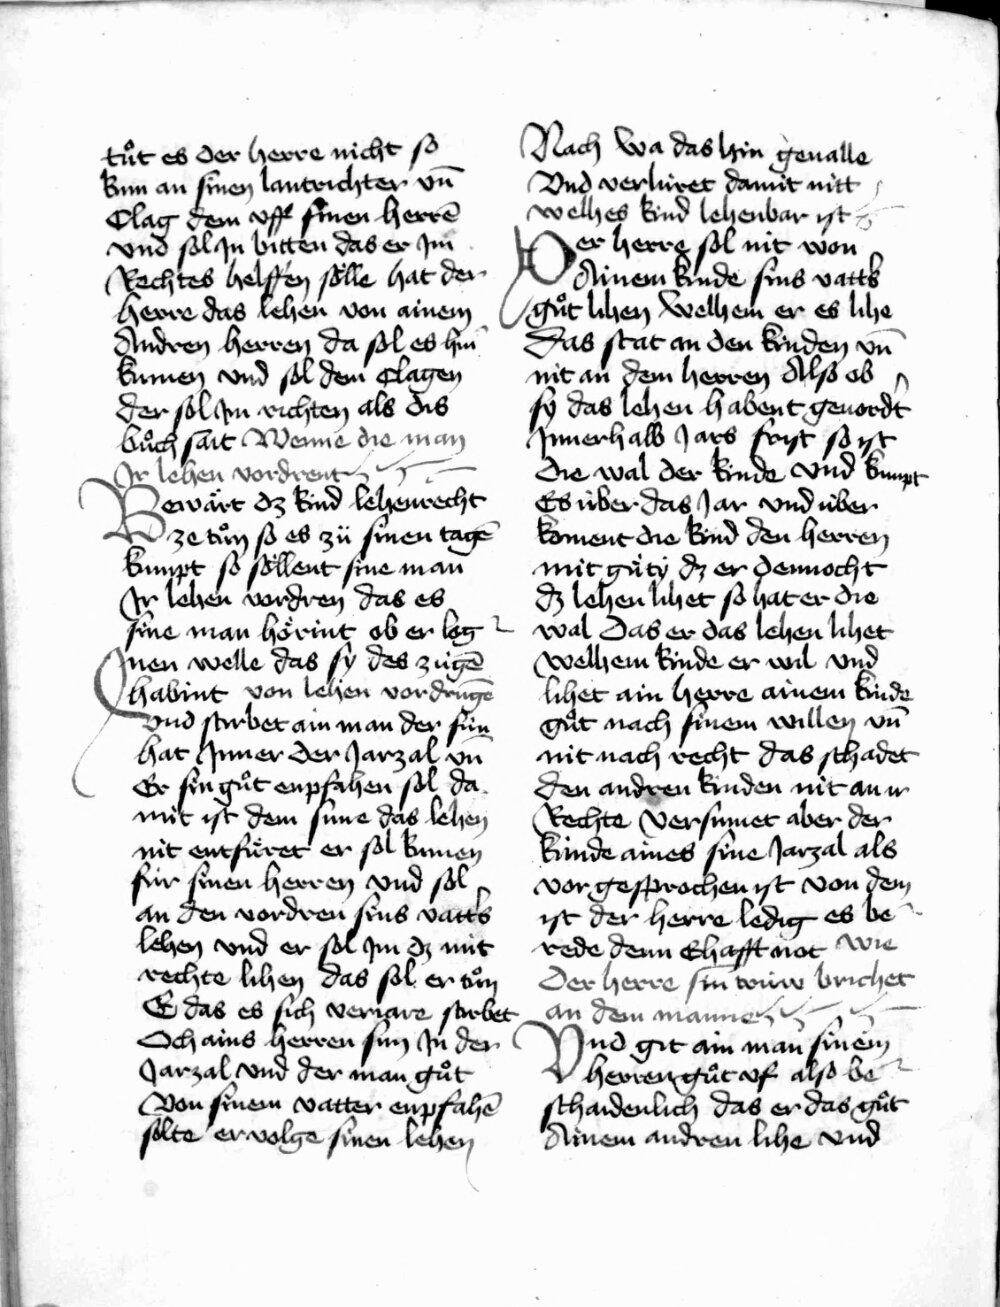 tůt es der herre nicht so
kum an sinen lantrichter vn̄
Clag dem vff sinen herrē
vnd sol Jn bitten das er Jm
Rechtes helffen sölle hat der
herre das lehen von ainem
Andren herren da sol es hin
kumen vnd sol dem Clagen
der sol Jm richten als dis
bůch sait Wenne die man
Jr lehen vordrent
Bewärt dz kind lehenrecht
ze tůn so es zü sinen tagē
kumpt so söllent sine man
Jr lehen vordren das es
sine man hörint ob er log
Jnen welle das sy des zügē
habint von lehen vordrūge
vnd stirbet ain man der sün
hat Jnner der Jarzal vn̄
Er sin gůt enpfahen sol da
mit ist dem sune das lehen
nit entfüret er sol kumen
für sinen herren vnd sol
an den vordren sins vatt's
lehen vnd er sol Jm dz mit
rechte lihen das sol er tůn
E das es sich veriare stirbet
Och ains herren sun Jn der
Jarzal vnd der man gůt
Von sinem vatter enpfahē
sölte er volge sinen lehen
Nach wa das hin geualle
Vnd verlüret damit nitt
welhes kind lehenbar ist
Der herre sol nit won
Ainem kinde sins vatt's
gůt lihen welhem er es lihe
Das stat an den kinden vn̄
nit an dem herren Also ob
sy das lehen habent geuordt'
Jnnerhalb Jars frist so ist
die wal der kinde vnd kumpt
Es über das Jar vnd über
koment die kind den herren
mit güty dz er dennocht
dz lehen lihet so hat er die
wal Das er das lehen lihet
welhem kinde er wil vnd
lihet ain herre ainem kinde
gůt nach sinem willen vn̄
nit nach recht das schadet
den andren kinden nit an ir
Rechte Versumet aber der
kinde aines sine Jarzal als
vor gesprochen ist von dem
ist der herre ledig es be
rede denn Ehafft not wie
Der herre sin trüw brichet
an dem manne
Vnd git ain man sinem
herren gůt vf also be
schaidenlich das er das gůt
Ainem andren lihe vnd